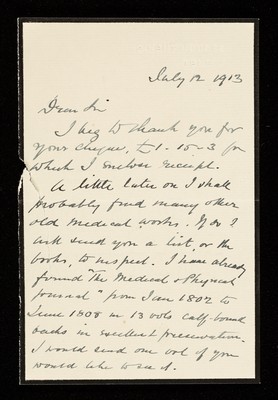 July 12 1913
Dear Sir
I beg to thank you for
your cheque, £1-15-3 for
which I enclose receipt.
A little later on I shall
probably find many other
old medical works. If so I
will send you a list, or the
books, to inspect. I have already
found "The Medical & Physical
Journal" from Jan 1802 to
June 1808 in 13 vols calf-bound
backs in excellent preservation.
I would send one vol if you
would like to see it.